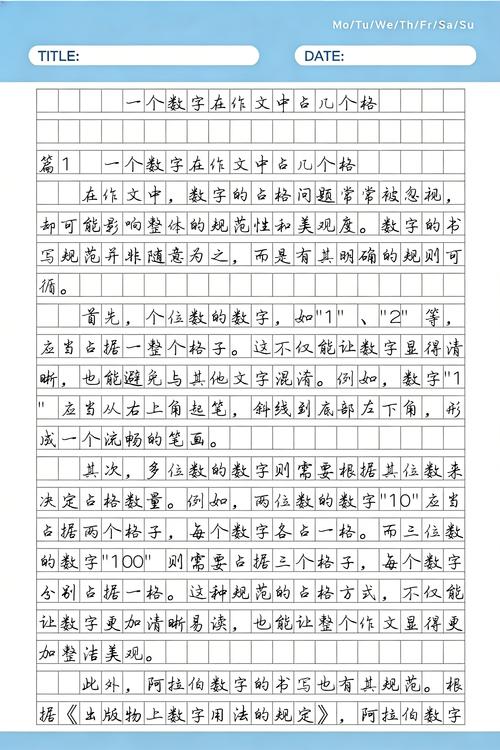 Mo/Tu/We/Th/Fr/Sa/Su
TITLE: DATE:
一个数字在作文中占几个格
篇1 一个数字在作文中占几个格
在作文中，数字的占格问题常常被忽视，
却可能影响整体的规范性和美观度。数字的书
写规范并非随意为之，而是有其明确的规则可
循。
首先，个位数的数字，如"1" 、"2" 等，
应当占据一整个格子。这不仅能让数字显得清
晰，也能避免与其他文字混淆。例如，数字"1
" 应当从右上角起笔，斜线到底部左下角，形
成一个流畅的笔画。
其次，多位数的数字则需要根据其位数来
决定占格数量。例如，两位数的数字"10"应当
占据两个格子，每个数字各占一格。而三位数
的数字"100" 则需要占据三个格子，每个数字
分别占据一格。这种规范的占格方式，不仅能
让数字更加清晰易读，也能让整个作文显得更
加整洁美观。
此外，阿拉伯数字的书写也有其规范。根
据《出版物上数字用法的规定》，阿拉伯数字